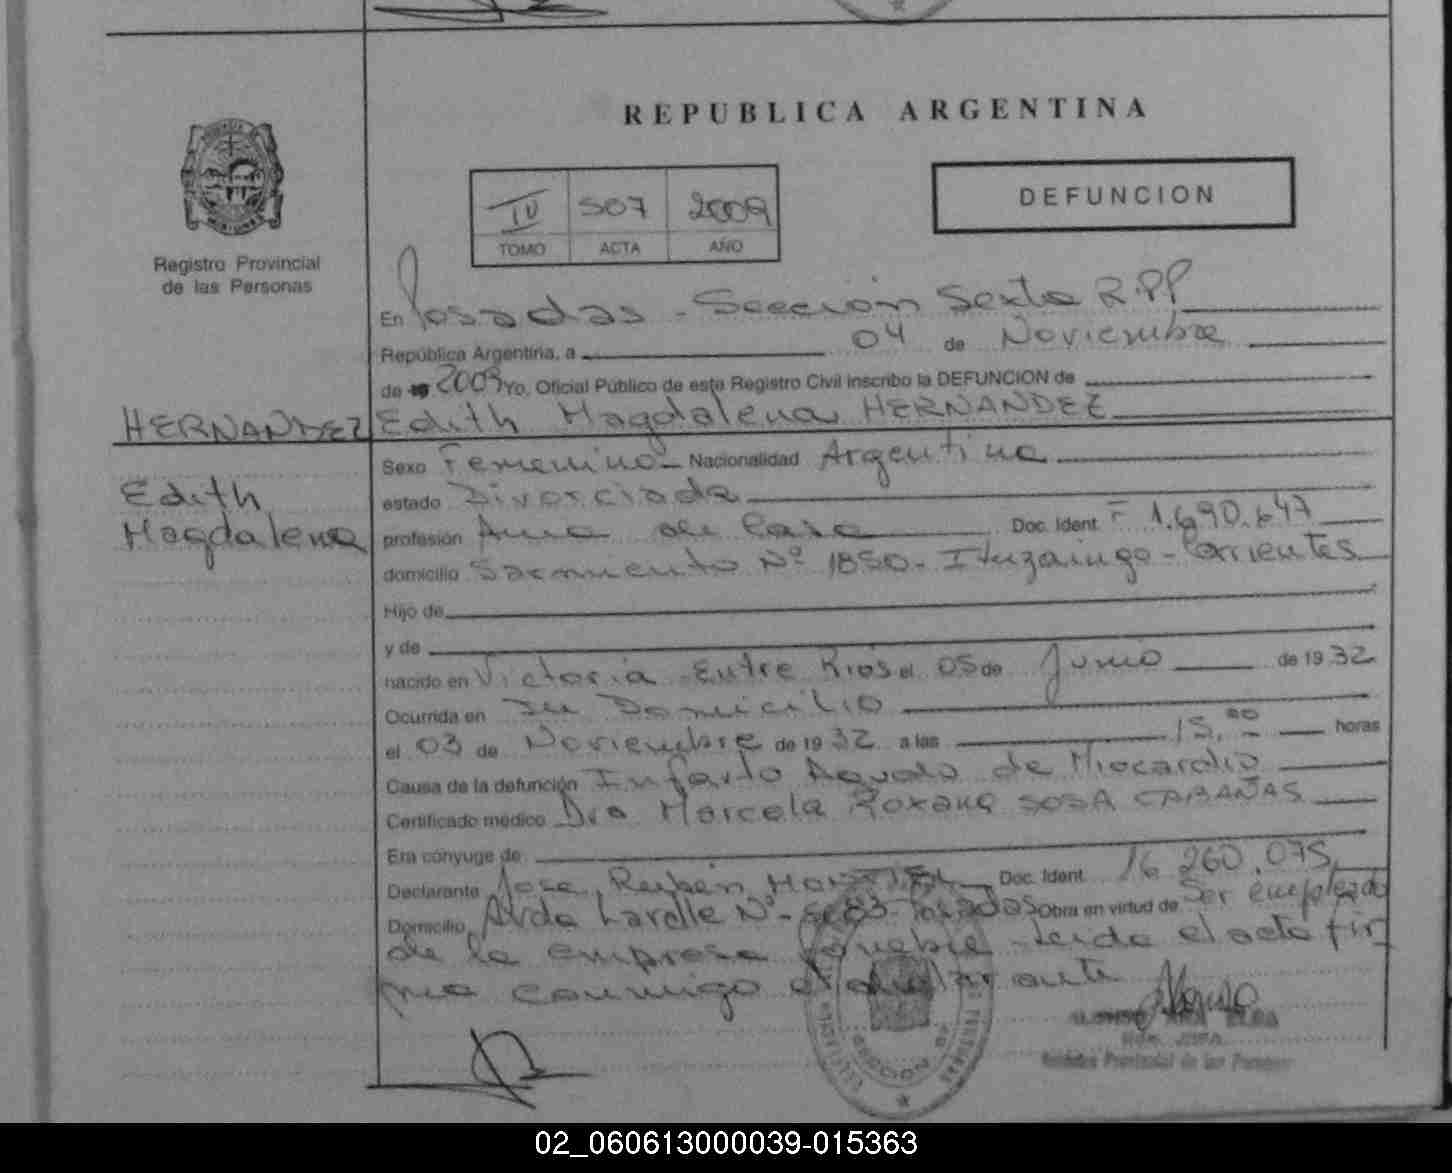 REPUBLICA ARGENTINA
DEFUNCION
IV 507 2009
TOMO ACTA AÑO
Registro Provincial
de las Personas
En Posadas - Sección Sexta R.P.P
República Argentina, a 04 de Noviembre
de 19 2009 Yo, Oficial Público de este Registro Civil inscribo la DEFUNCION de
HERNANDEZ Edith Magdalena HERNANDEZ
Sexo Femenino - Nacionalidad Argentina
Edith
estado Divorciada
Magdalena
profesión Ama de Casa Doc. Ident. F 1.690.647
domicilio Sarmiento Nº 1850 - Ituzaingo - Corrientes
Hijo de
y de
nacido en Victoria Entre Rios el 05 de Junio de 19 32
Ocurrida en Su Domicilio
el 03 de Noviembre de 19 32 a las 15,00 horas
Causa de la defunción Infarto Agudo de Miocardio
Certificado médico Dra Marcela Roxana SOSA CABAÑAS
Era cónyuge de
Declarante Jose Ruben Doc. Ident. 16.260.075
Domicilio Avda Lavalle Nº - Posadas Obra en virtud de Ser empleado
de la empresa - Leida el acta fir
ma conmigo el declarante
Registro Provincial de las Personas
02_060613000039-015363